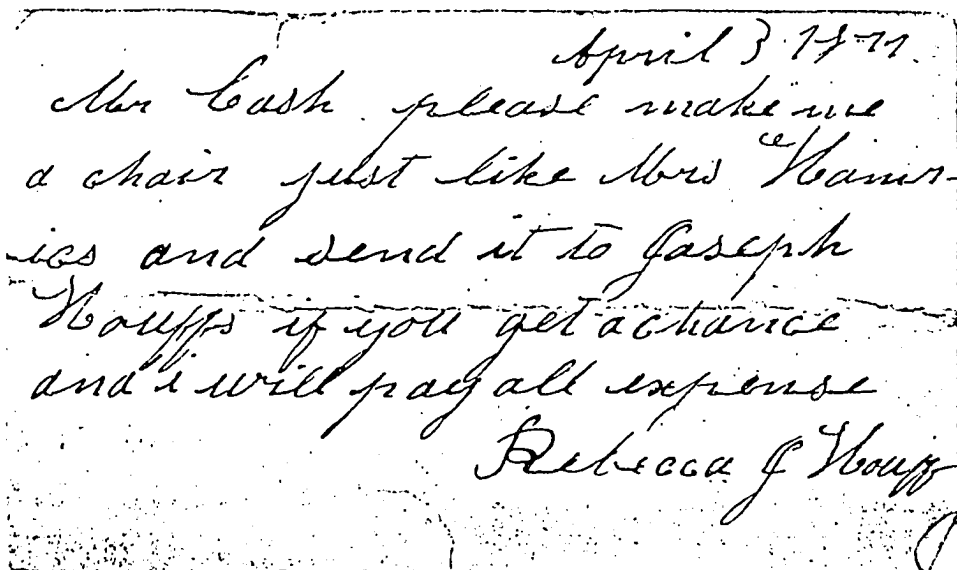 April 3 1877.
Mr Cash please make me
a chair just like Mrs Hamr-
ics and send it to Joseph
Houffs if you get a chance
and i will pay all expense
Rebecca J Houff